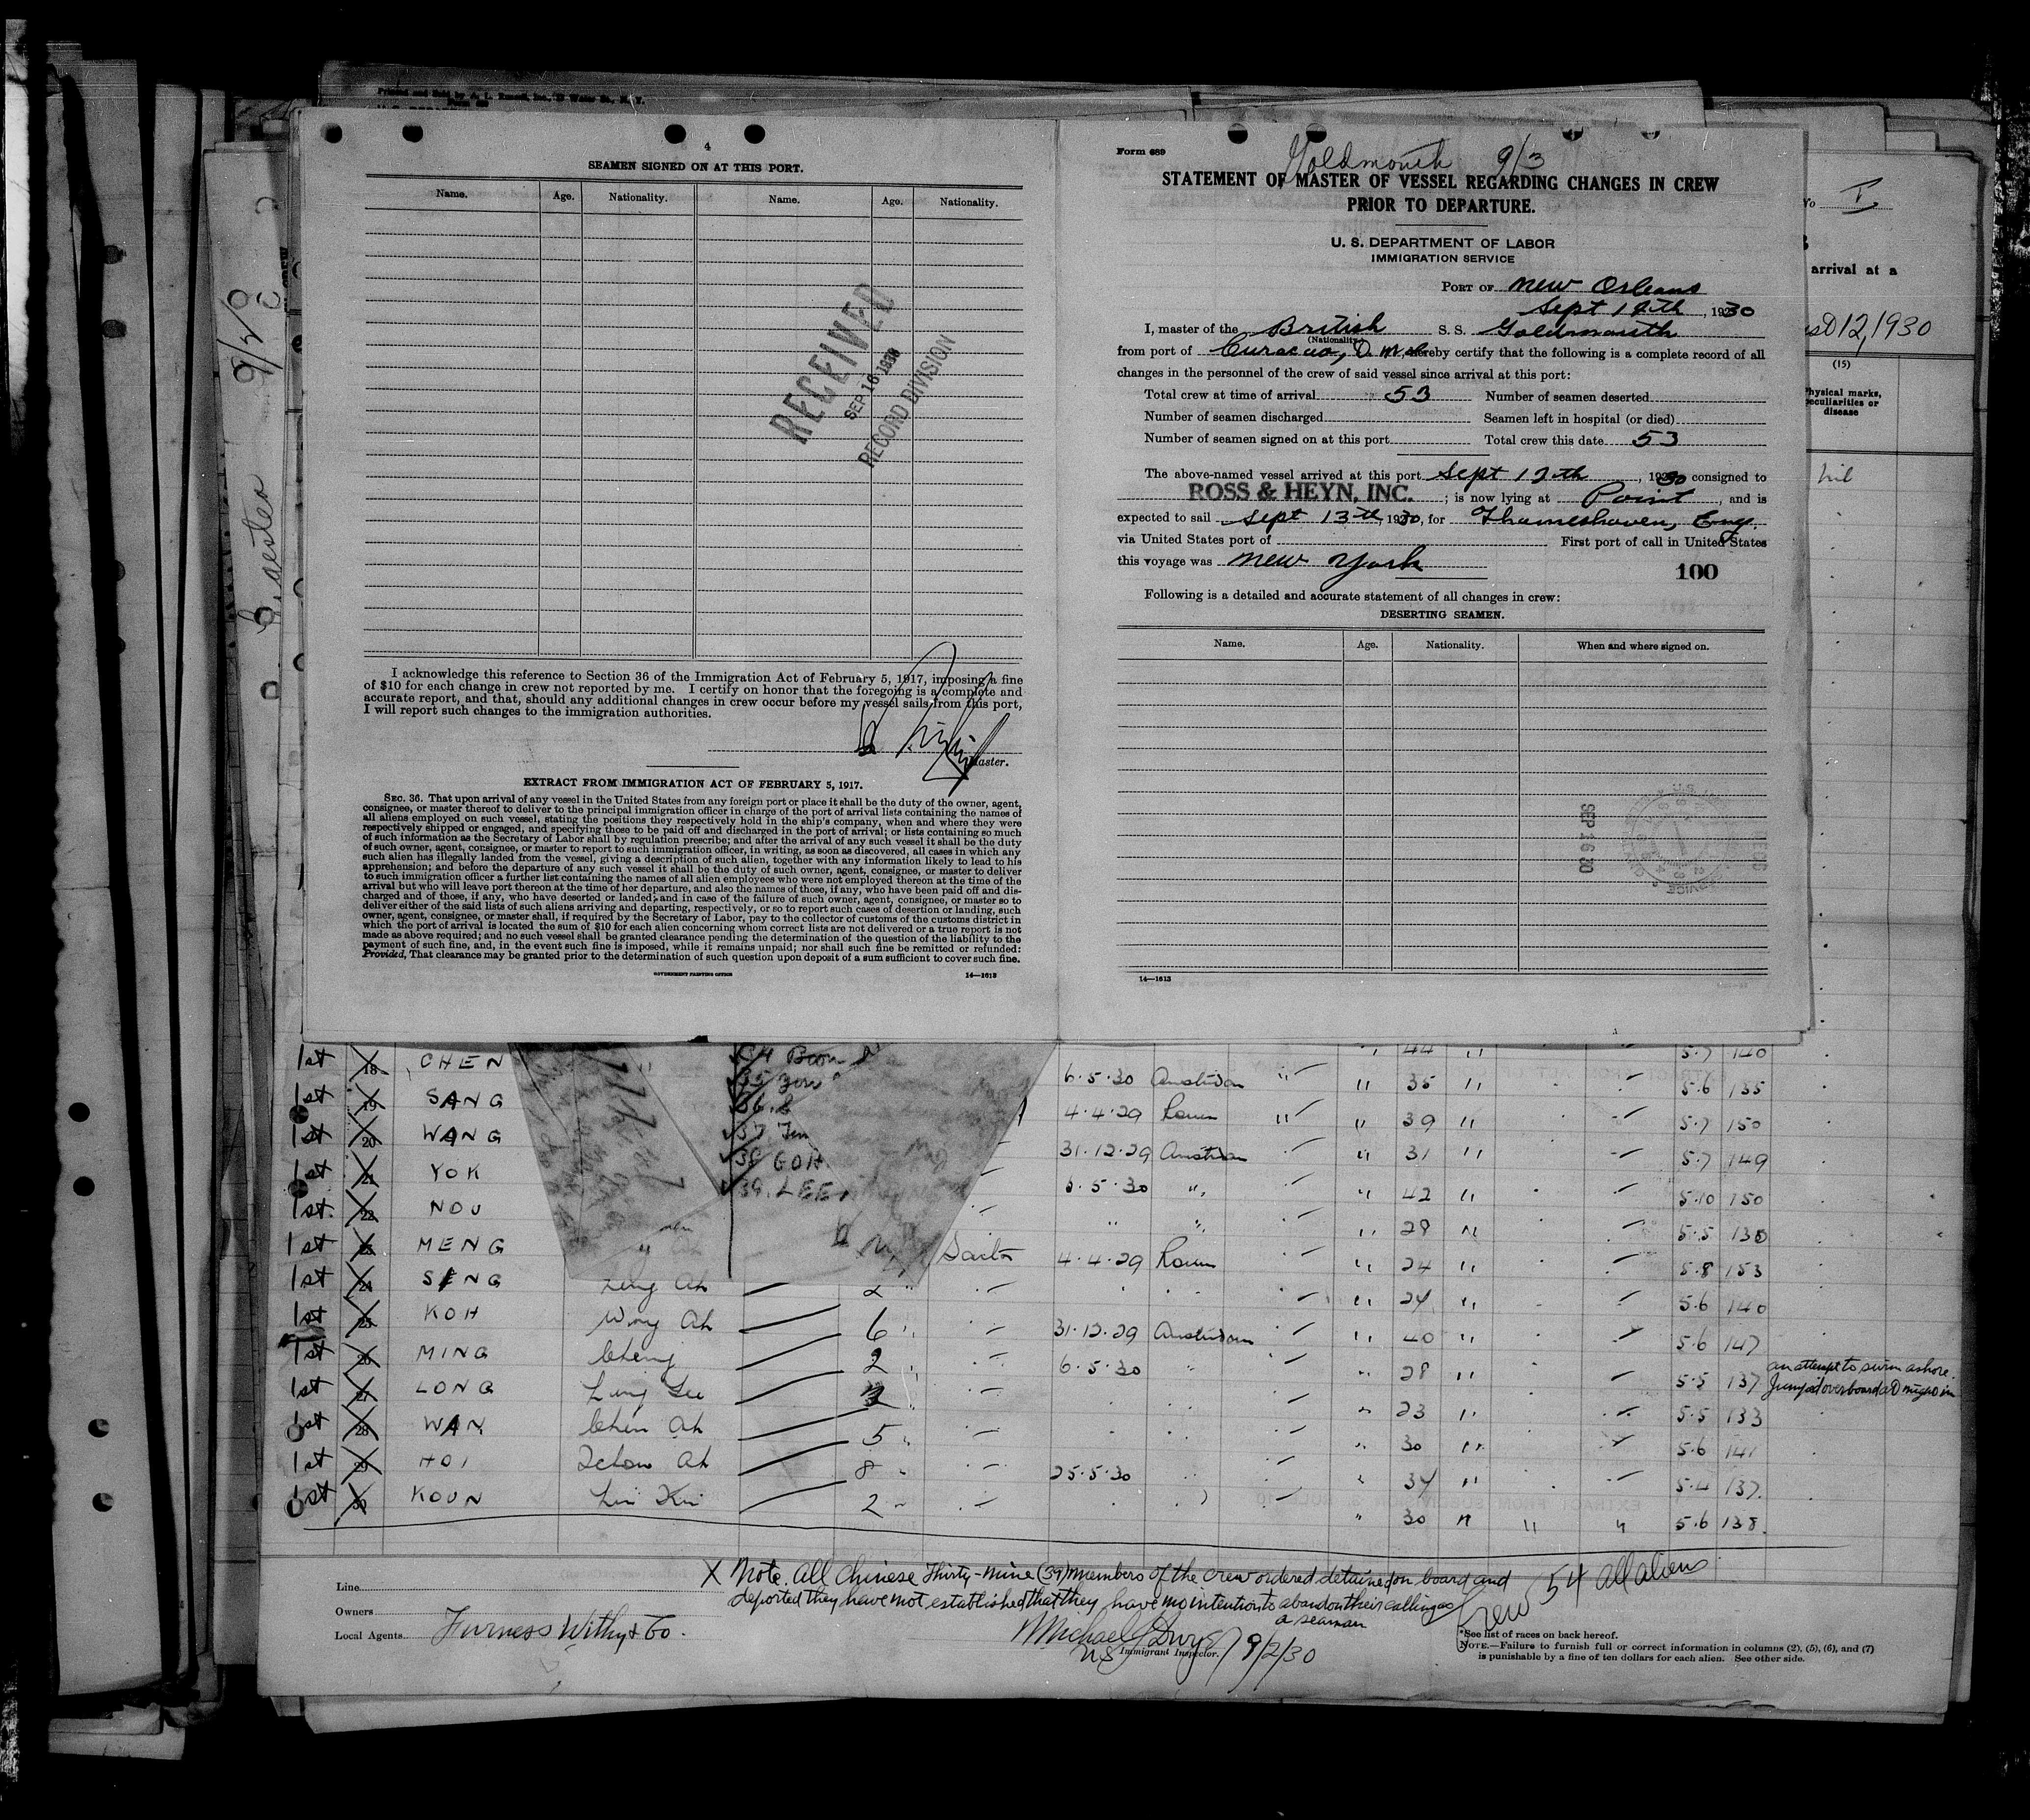 Printed and Sold by A. L. Russell, Inc., Water St., N. Y.
4
SEAMEN SIGNED ON AT THIS PORT.
Name. Age. Nationality. Name. Age. Nationality.
RECEIVED
SEP 16 1930
RECORD DIVISION
I acknowledge this reference to Section 36 of the Immigration Act of February 5, 1917, imposing a fine
of $10 for each change in crew not reported by me. I certify on honor that the foregoing is a complete and
accurate report, and that, should any additional changes in crew occur before my vessel sails from this port,
I will report such changes to the immigration authorities.
Master.
EXTRACT FROM IMMIGRATION ACT OF FEBRUARY 5, 1917.
SEC. 36. That upon arrival of any vessel in the United States from any foreign port or place it shall be the duty of the owner, agent,
consignee, or master thereof to deliver to the principal immigration officer in charge of the port of arrival lists containing the names of
all aliens employed on such vessel, stating the positions they respectively hold in the ship's company, when and where they were
respectively shipped or engaged, and specifying those to be paid off and discharged in the port of arrival; or lists containing so much
of such information as the Secretary of Labor shall by regulation prescribe; and after the arrival of any such vessel it shall be the duty
of such owner, agent, consignee, or master to report to such immigration officer, in writing, as soon as discovered, all cases in which any
such alien has illegally landed from the vessel, giving a description of such alien, together with any information likely to lead to his
apprehension; and before the departure of any such vessel it shall be the duty of such owner, agent, consignee, or master to deliver
to such immigration officer a further list containing the names of all alien employees who were not employed thereon at the time of the
arrival but who will leave port thereon at the time of her departure, and also the names of those, if any, who have been paid off and dis-
charged and of those, if any, who have deserted or landed; and in case of the failure of such owner, agent, consignee, or master so to
deliver either of the said lists of such aliens arriving and departing, respectively, or so to report such cases of desertion or landing, such
owner, agent, consignee, or master shall, if required by the Secretary of Labor, pay to the collector of customs of the customs district in
which the port of arrival is located the sum of $10 for each alien concerning whom correct lists are not delivered or a true report is not
made as above required; and no such vessel shall be granted clearance pending the determination of the question of the liability to the
payment of such fine, and, in the event such fine is imposed, while it remains unpaid; nor shall such fine be remitted or refunded:
Provided, That clearance may be granted prior to the determination of such question upon deposit of a sum sufficient to cover such fine.
GOVERNMENT PRINTING OFFICE 14—1613
Form 689
Goldmouth 9/3
STATEMENT OF MASTER OF VESSEL REGARDING CHANGES IN CREW
PRIOR TO DEPARTURE.
U. S. DEPARTMENT OF LABOR
IMMIGRATION SERVICE
PORT OF New Orleans
Sept 12th, 1930
I, master of the British S. S. Goldmouth
(Nationality.)
from port of Curacao, D.W.I. hereby certify that the following is a complete record of all
changes in the personnel of the crew of said vessel since arrival at this port:
Total crew at time of arrival 53 Number of seamen deserted
Number of seamen discharged Seamen left in hospital (or died)
Number of seamen signed on at this port Total crew this date 53
The above-named vessel arrived at this port Sept 12th, 1930 consigned to
ROSS & HEYN, INC. ; is now lying at Point, and is
expected to sail Sept 13th, 1930, for Thameshaven, Eng.
via United States port of First port of call in United States
this voyage was New York
100
Following is a detailed and accurate statement of all changes in crew:
DESERTING SEAMEN.
Name. Age. Nationality. When and where signed on.
SEP 16 30
14—1613
arrival at a
12, 1930
(15)
Physical marks,
peculiarities or
disease
nil
9/2
1st 18 CHEN 44 " 5.7 140
1st 19 SANG 6.5.30 Amsterdam " " 35 " 5.6 135
1st 20 WANG 4.4.29 Rouen " " 39 " 5.7 150
1st 21 YOK 31.12.29 Amsterdam " 31 " 5.7 149
1st 22 NOU 5.30 " " 42 " 5.10 150
1st 23 MENG " " " 28 " 5.5 130
1st 24 SENG Ah 2 " Sailor 4.4.29 Rouen " 24 " 5.8 153
1st 25 KOH Wong Ah 6 " " 24 " 5.6 140
1st 26 MING Cheng 2 " 31.12.29 Amsterdam " 40 " 5.6 147
1st 27 LONG Ling See 3 6.5.30 " " 28 " 5.5 137 an attempt to swim ashore. Jumped overboard
1st 28 WAN Chen Ah 5 " " 23 " 5.5 133
1st 29 HOI Tchow Ah 8 " 30 " 5.6 141
1st 30 KOUN Lin Kui 2 " 25.5.30 " 34 " 5.4 137
" 30 " " " 5.6 138
34 Boon
35 You
36
37
38 GOH
39 LEE
X Note. All Chinese Thirty-nine (39) members of the crew ordered detained on board and
deported they have not established that they have no intention to abandon their calling as
a seaman
Crew 54 all aliens
Line
Owners
Local Agents Furness Withy & Co.
Michael J Dwyer 9/2/30
U.S. Immigrant Inspector.
*See list of races on back hereof.
NOTE.—Failure to furnish full or correct information in columns (2), (5), (6), and (7)
is punishable by a fine of ten dollars for each alien. See other side.